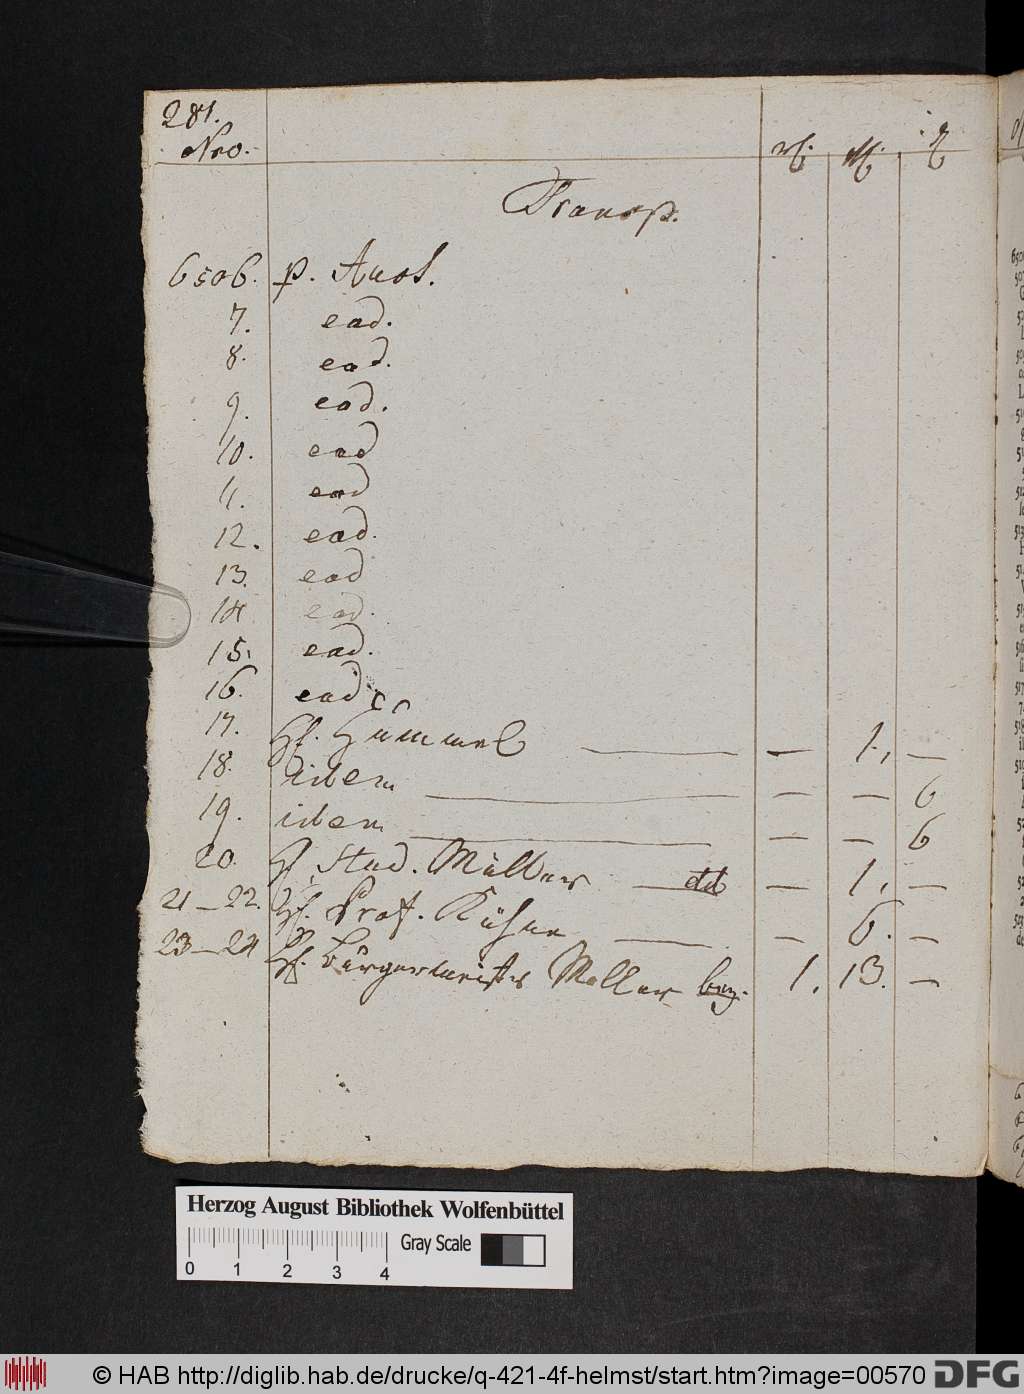 281.
Nro.
Transp.
6506. p. Auct.
7. ead.
8. ead.
9. ead.
10. ead
11. ead
12. ead.
13. ead
14 ead.
15. ead.
16. ead.
17. H. Hummel — — 1. —
18. idem — — — 6
19. idem — — — 6
20. H. Stud. Müller — dd — 1. —
21–22. H. Prof. Kühne — — 6. —
23–24 H. Bürgermeister Müller 1. 13. —
Herzog August Bibliothek Wolfenbüttel
Gray Scale
0 1 2 3 4
© HAB http://diglib.hab.de/drucke/q-421-4f-helmst/start.htm?image=00570 DFG